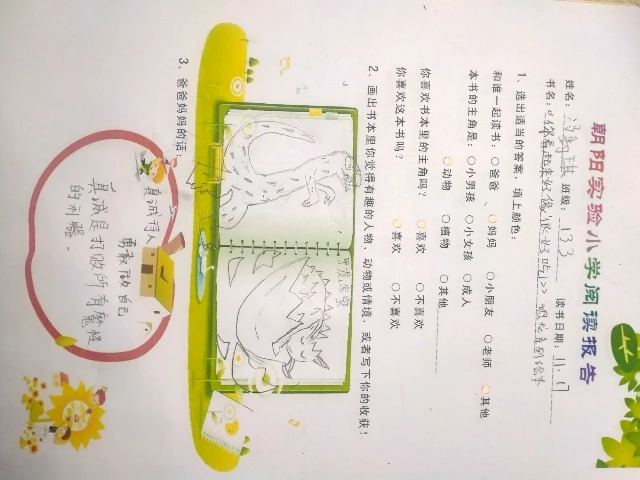 朝阳实验小学阅读报告
姓名： 班级：133 读书日期：11.17
书名：《你看起来好像很好吃》
1、选出适当的答案，填上颜色：
和谁一起读书：○爸爸、○妈妈 ○小朋友 ○老师 ○其他
本书的主角是：○小男孩 ○小女孩 ○成人
○动物 ○植物 ○其他
你喜欢书本里的主角吗？ ○喜欢 ○不喜欢
你喜欢这本书吗？ ○喜欢 ○不喜欢
2、画出书本里你觉得有趣的人物、动物或情境，或者写下你的收获！
3、爸爸妈妈的话：
真诚待人
勇敢做自己
真诚是打败所有魔怪
的利器。